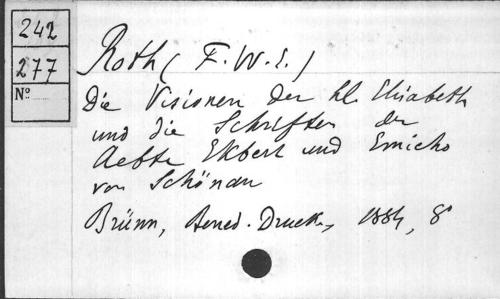 242
277
Nº
Roth (F. W. E.)
Die Visionen der hl. Elisabeth
und die Schriften der
Aebte Ekbert und Emicho
von Schönau
Brünn, Bened. Druck., 1884, 8º